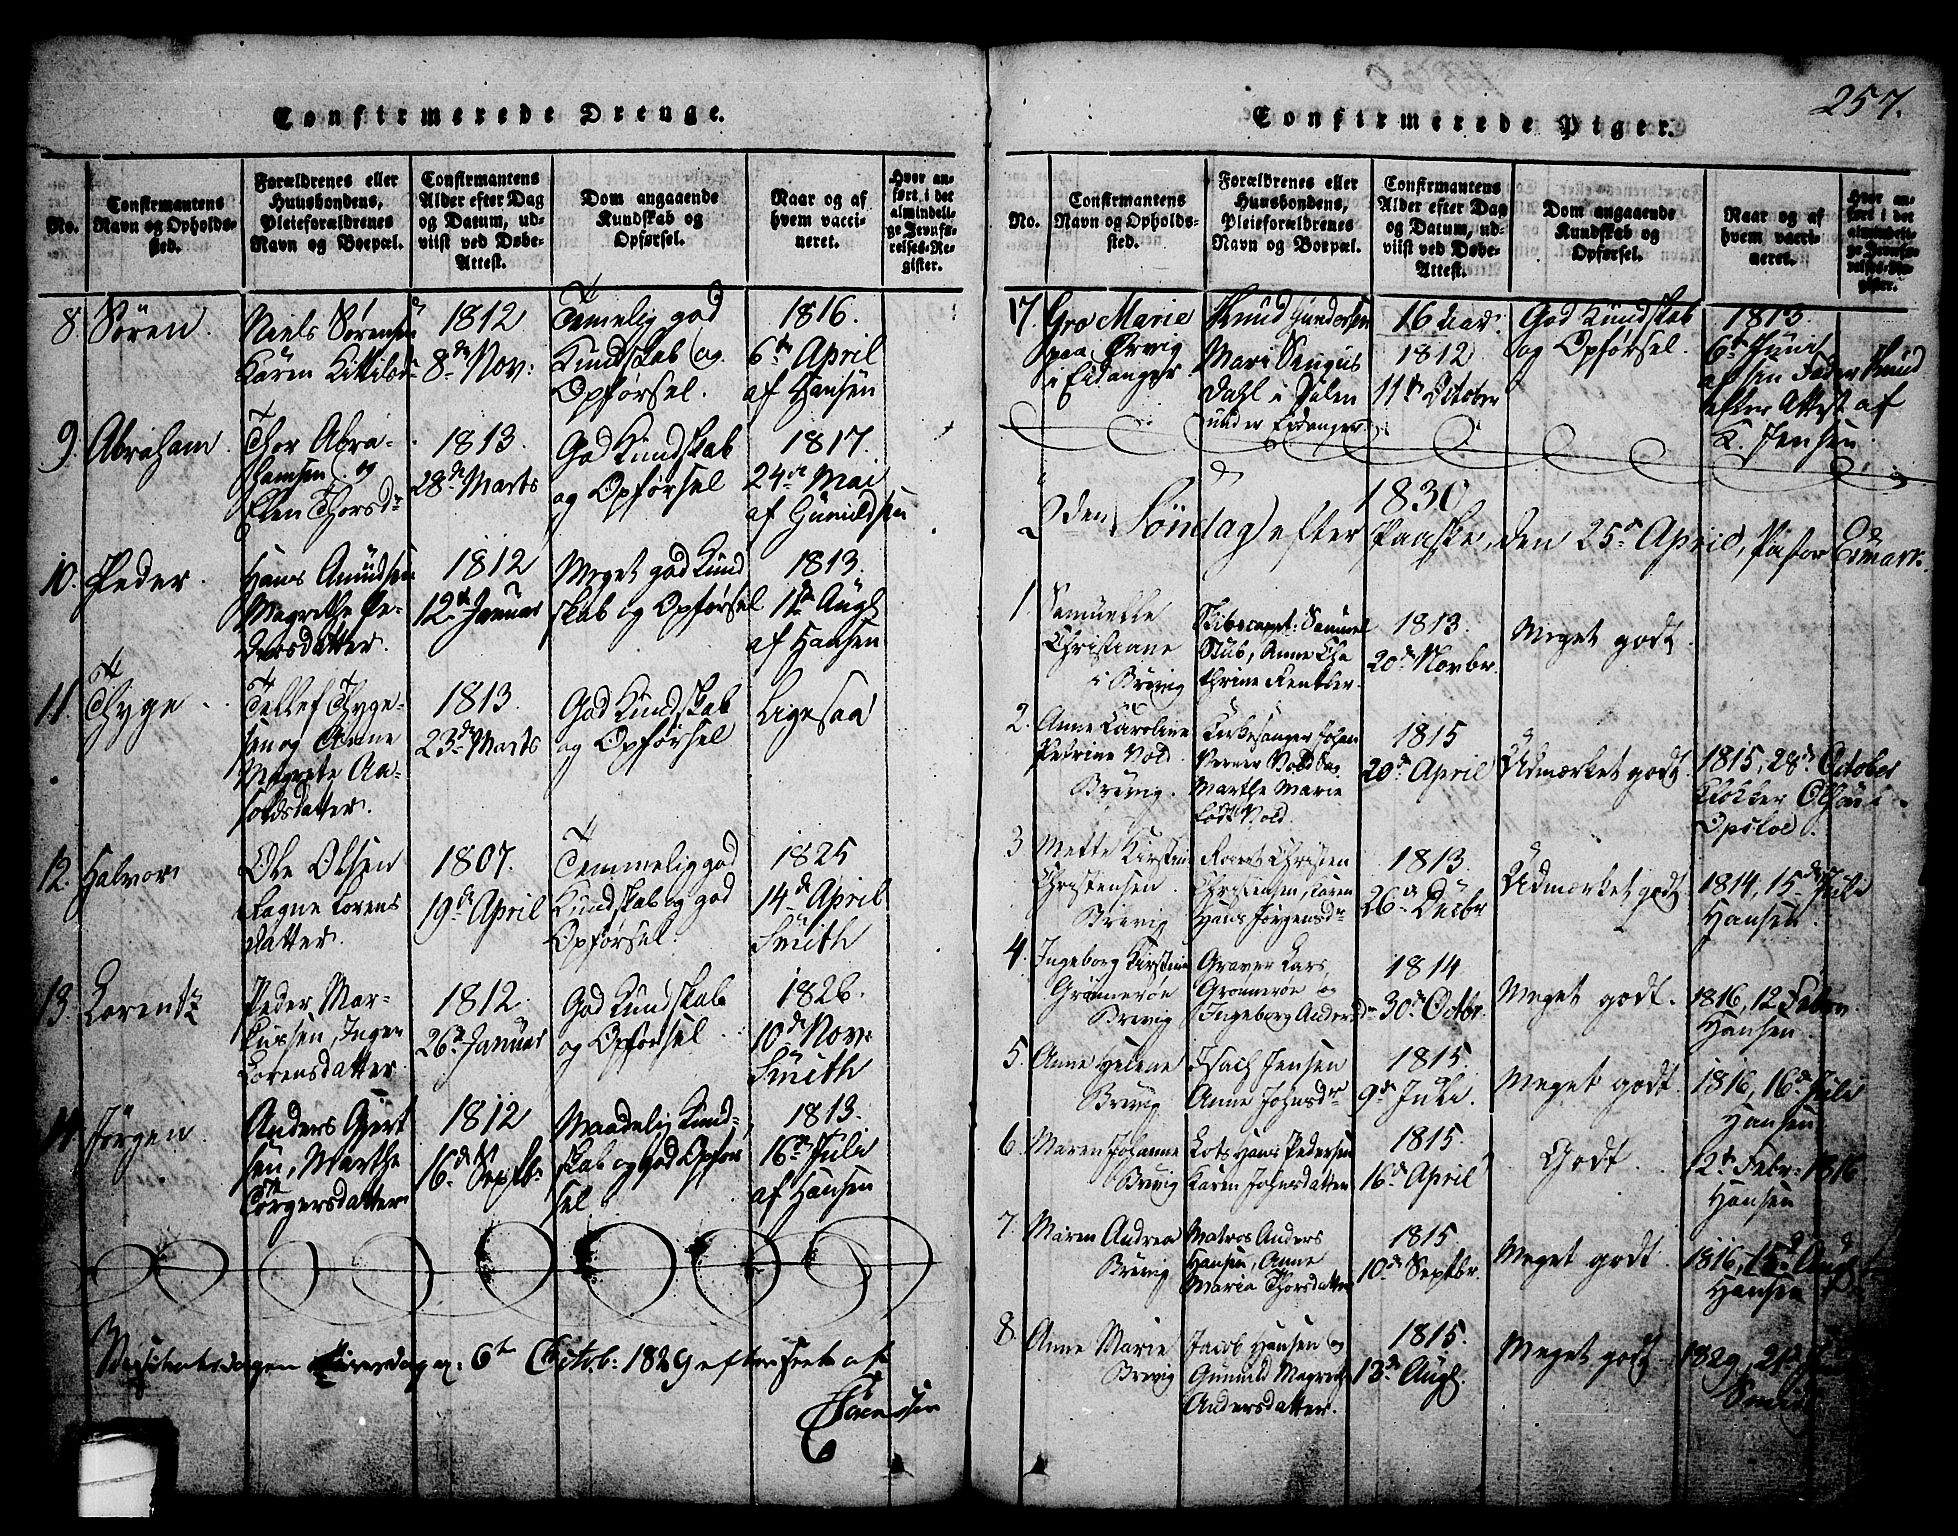 257.
Confirmerede Drenge.
No.
Confirmantens
Navn og Opholds-
sted.
Forældrenes eller
Huusbondens,
Pleieforældrenes
Navn og Boepæl.
Confirmantens
Alder efter Dag
og Datum, ud-
viist ved Døbe-
Attest.
Dom angaaende
Kundskab og
Opførsel.
Naar og af
hvem vacci-
neret.
Hvor an-
ført i det
almindeli-
ge Jevnfø-
relses-Re-
gister.
8. Sören.
Niels Sörensen
Karen Kittilsd
1812
8de Nov:
Temelig god
Kundskab og
Opførsel.
1816.
6te April
af Hansen
9. Abraham.
Thor Abra-
hamsen og
Elen Thorsdr
1813.
28de Marts
God Kundskab
og Opførsel
1817.
24de Mai
af Gunuldsen
10. Peder.
Hans Amundsen
Magrethe Pe-
dersdatter.
1812
12te Januar
Meget god Kund
skab og Opførsel
1813.
11te Augl
af Hansen
11. Thyge
Tellef Thyge-
sen og Anne
Magrete Aa-
soldsdatter.
1813.
23de Marts
God Kundskab
og Opførsel
Ligesaa
12. Halvor
Ole Olsen
Ragne Lorens
datter.
1807.
19de April
Temmelig god
Kundskab og god
Opførsel.
1825
14de April
Smith
13. Lorentz
Peder Mar-
kussen, Inger
Lorensdatter.
1812.
26de Januar
God Kundskab
og Opførsel
1826.
10de Nov:
Smith
14 Jörgen.
Anders Gjert
sen, Marthe
Törgersdatter
1812
16de Septb.
Maadelig Kund-
skab og god Opfør
sel
1813.
16de Juli
af Hansen
6te Octob: 1829 efterseet af
Confirmerede Piger.
No.
Confirmantens
Navn og Opholds-
sted.
Forældrenes eller
Huusbondens,
Pleieforældrenes
Navn og Boepæl.
Confirmantens
Alder efter Dag
og Datum, ud-
viist ved Døbe-
Attest.
Dom angaaende
Kundskab og
Opførsel.
Naar og af
hvem vacci-
neret.
Hvor an-
ført i det
almindeli-
ge Jevnfø-
relses-Re-
gister.
17. Gro Marie
paa Ørvig
i Eidanger
Knud Gundersen
Mari Sengus
Dahl i Dalen
under Eidanger.
16 aar.
1812
11te October
God Kundskab
og Opførsel.
1813.
6te Juni
af sin Fader Knud
efter Attest af
K. Jensen
1830
2den Søndag efter Paaske, den 25de April, Pastor Edmark.
1. Samuelle
Christiane
i Brevig
Skibscapt: Samuel
Stub, Anne Cha
thrine Rentler.
1813.
20de Novbr.
Meget godt.
2. Anne Caroline
Petrine Vold
Brevig.
Kirkesanger Johan
Verner Vold og
Marthe Marie
født Vold.
1815
20de April
Udmærket godt
1815, 28de October
Klokker
Opsloe.
3 Mette Kirstine
Christensen
Brevig
Christen
Christensen, Karen
Hans Jörgensdr
1813.
26de Decbr
Udmærket godt
1814, 15de Juli
Hansen.
4. Ingeborg Kirstine
Grönneröe
Brevig
Graver Lars
Grönneröe og
Ingeborg Andersdr
1814
30te Octbr.
Meget godt.
1816, 12 Febr.
Hansen.
5. Anne Helene
Brevig
Isach Jensen
Anne Johnsdr
1815.
9de Juli.
Meget godt
1816, 16de Juli
Hansen
6. Maren Johanne
Brevig
Lots Hans Pedersen
Karen Johnsdatter
1815.
16de April
Godt
12te Febr: 1816
Hansen
7. Maren Andrea
Brevig
Matros Anders
Hansen, Anne
Maria Thorsdatter
1815.
10de Septbr.
Meget godt.
1816, 15de Augl
Hansen
8. Anne Marie
Brevig
Jacob Hansen og
Gunuld Magrethe
Andersdatter.
1815.
13de Augl.
Meget godt
1829,